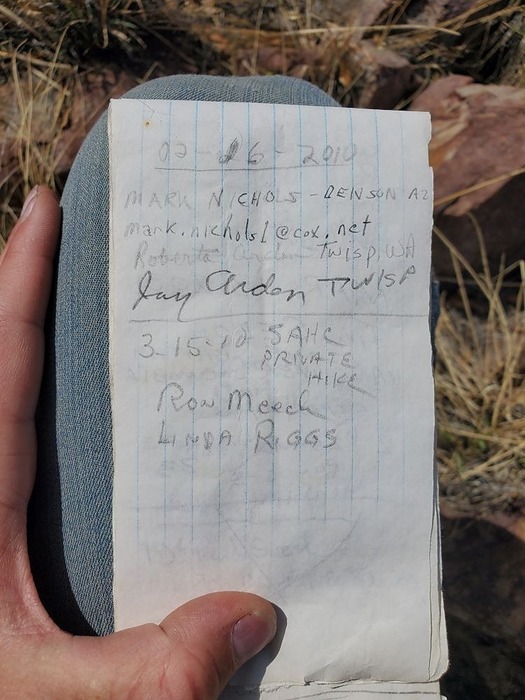 02-26-2010
MARK NICHOLS - BENSON AZ
mark.nichols1@cox.net
Roberta Ardon Twisp, WA
Jay Ardon TWISP
3-15-10 SAHC
PRIVATE
HIKE
Ron Meech
LINDA RIGGS